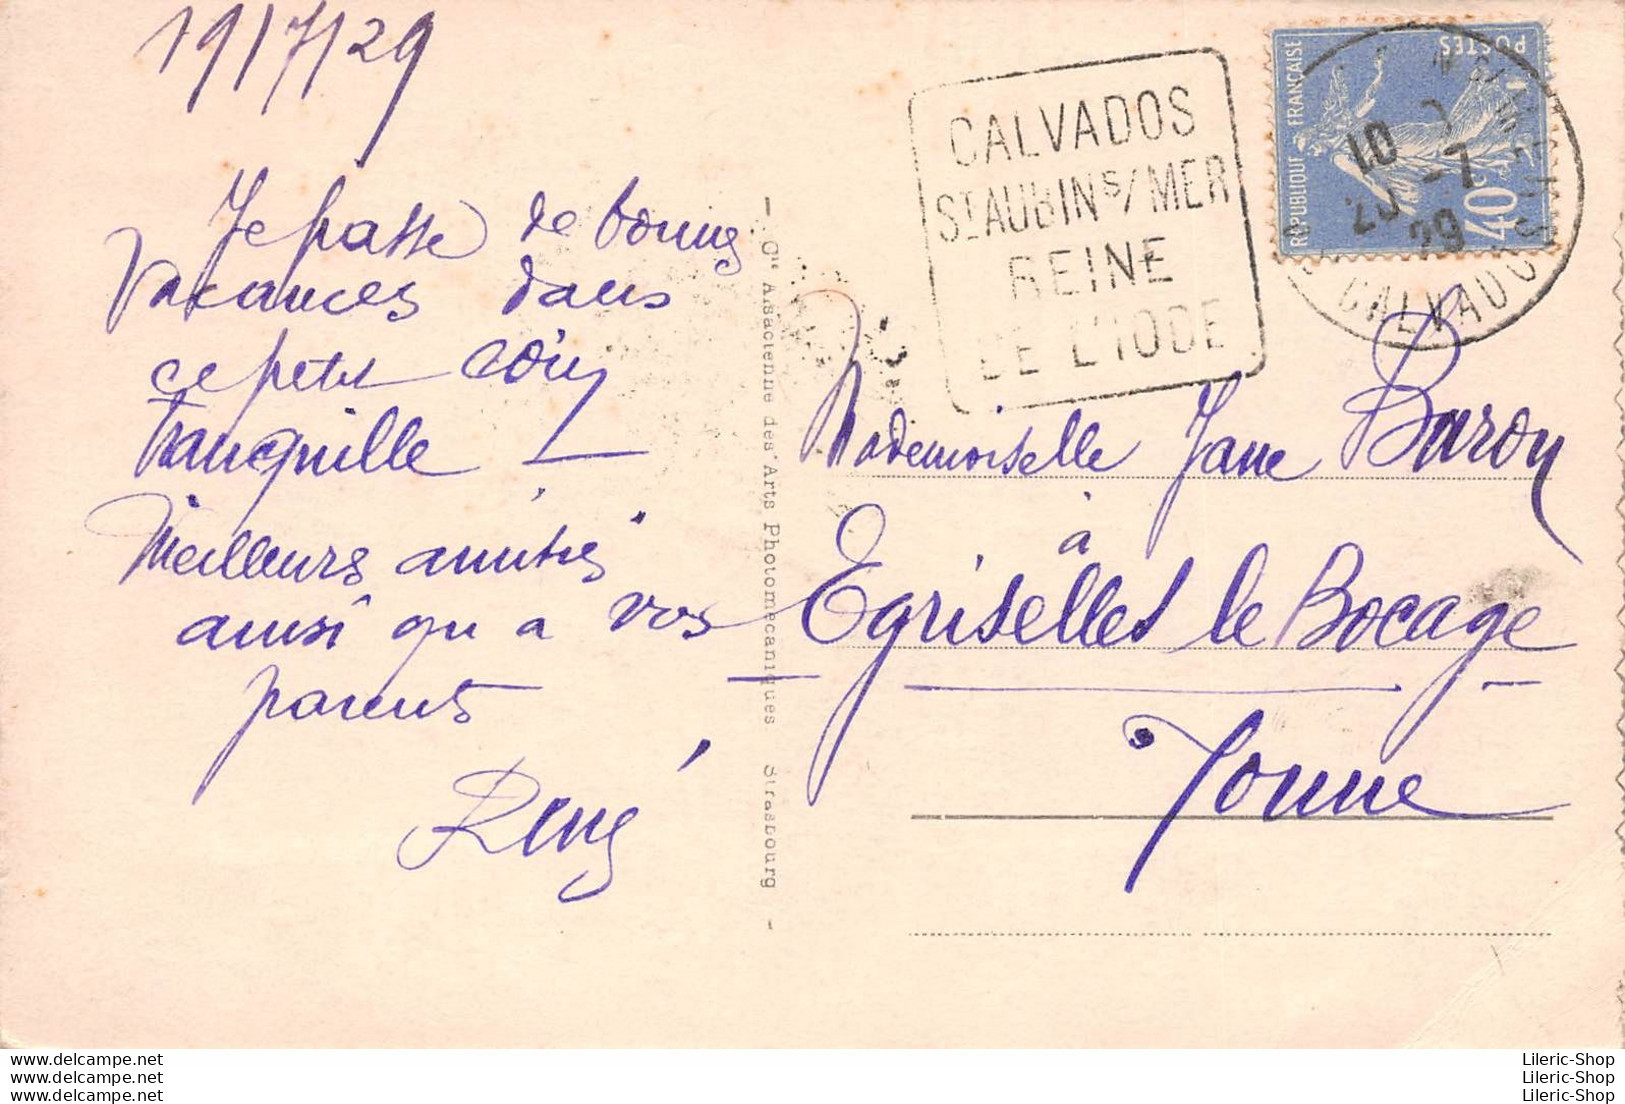 19/7/29
Je passe de bonnes
vacances dans
ce petit coin
tranquille —
Meilleurs amitiés
ainsi qu a vos
parents
René
- Cie Alsacienne des Arts Photomécaniques Strasbourg -
CALVADOS
ST AUBIN S/MER
REINE
DE L'IODE
REPUBLIQUE FRANÇAISE
POSTES
40c
10
20 -7
29
CALVADOS
Mademoiselle Jane Baron
à
Egriselles le Bocage
Yonne
www.delcampe.net
www.delcampe.net
www.delcampe.net
Lileric-Shop
Lileric-Shop
Lileric-Shop